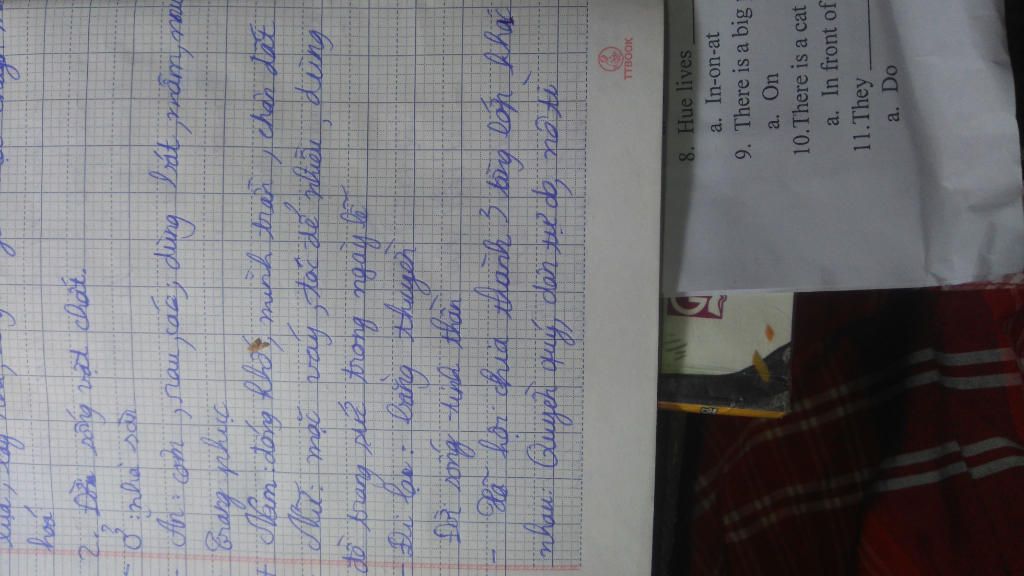 hoá
2. Đời sống vật chất.
- Ở: nhà sàn
- Ăn: cơm, rau, cá, dùng bát, mâm,
Trang phục
+ Nam: đóng khố, mình trần, chân đất
Nữ: mặc váy, tóc để nhiều, dùng
đồ trang sức trong ngày lễ
- Đi lại: bằng thuyền
Đời sống tinh thần
- Xã hội: chia thành 3 tầng lớp khác
nhau: Quyền quý, dân tự do, nô tì
TTBOOK
8. Hue lives
a. In-on-at
9. There is a big
a. On
10. There is a cat
a. In front of
11. They ______
a. Do